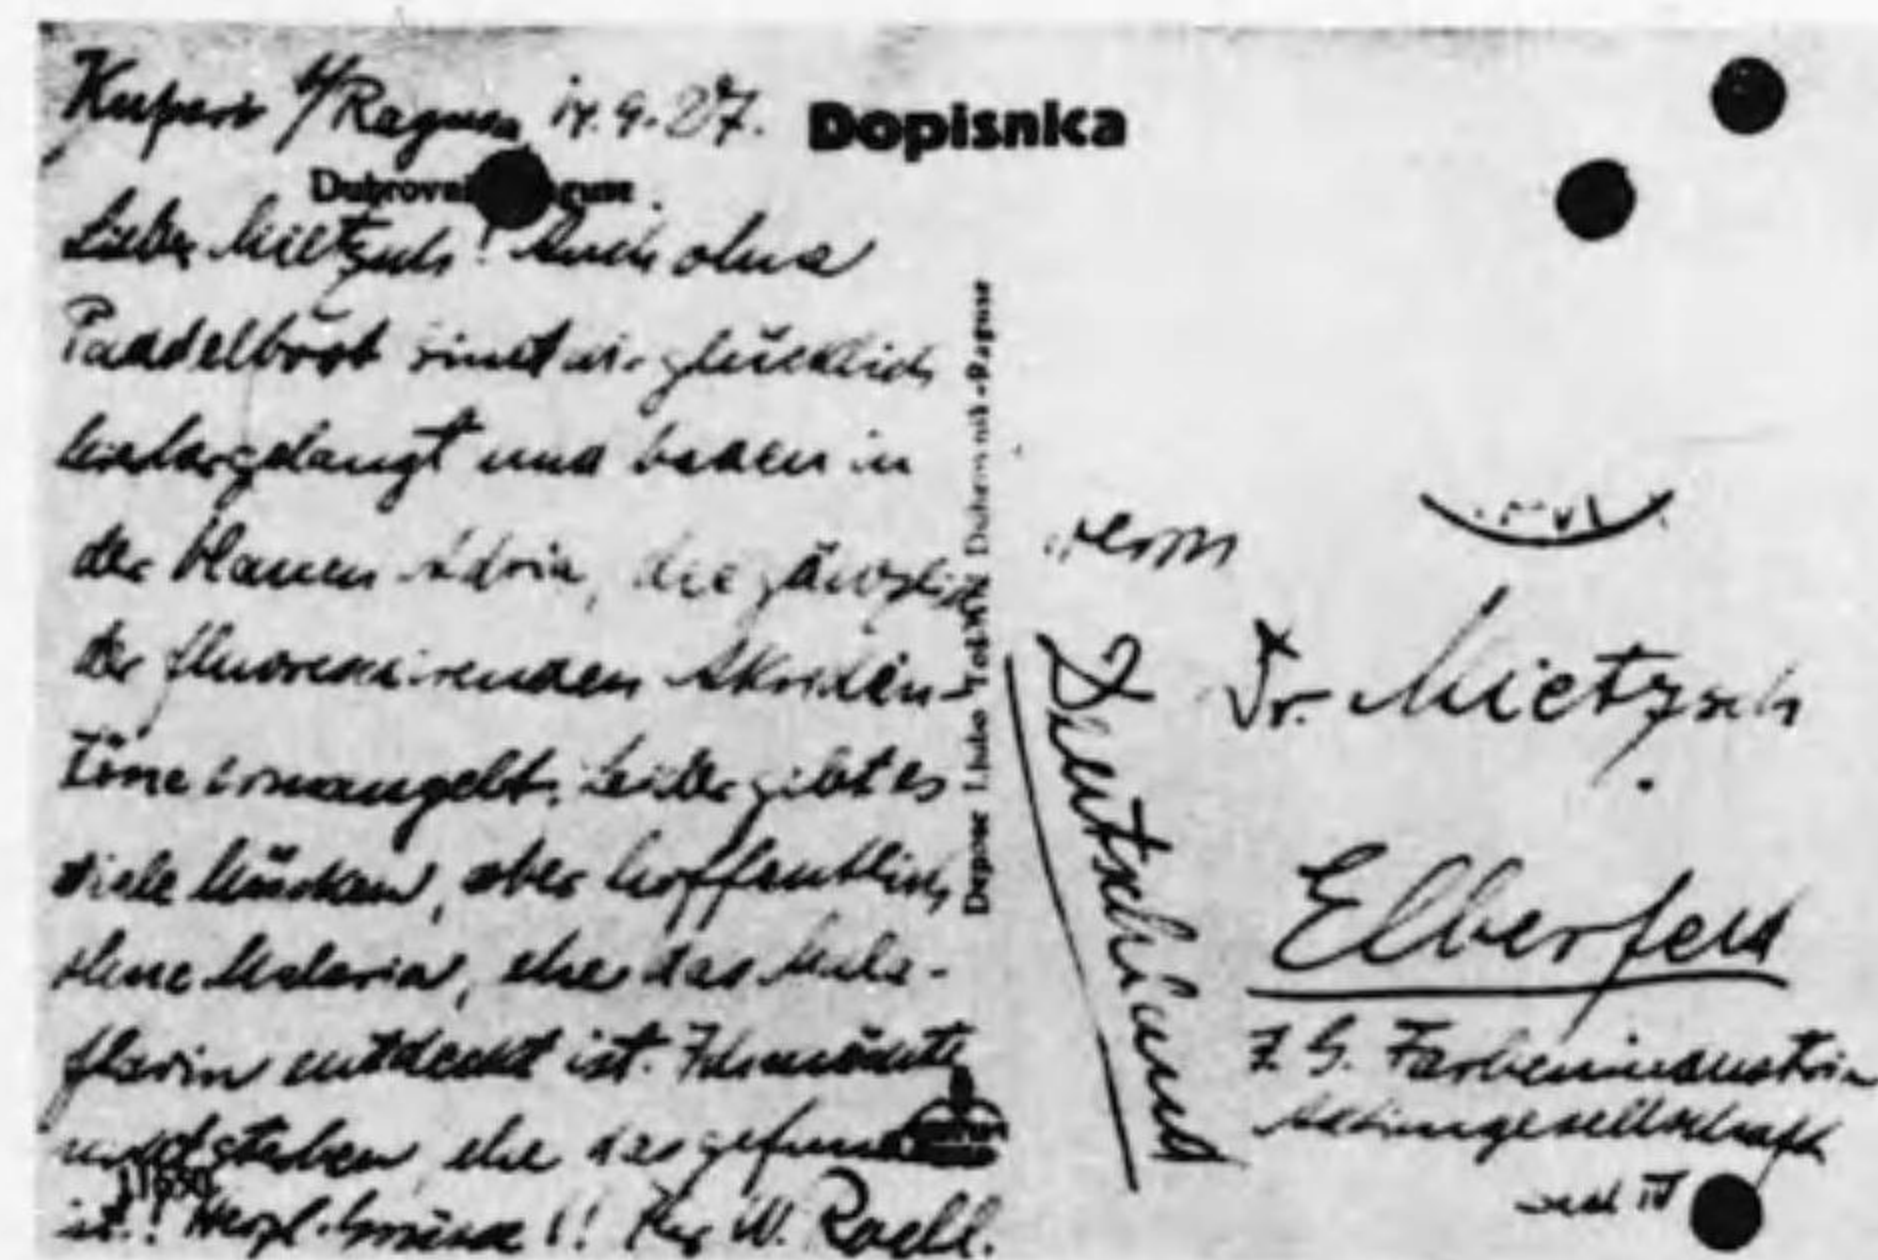 Kupari b/Ragusa, 9.27.
Dopisnica
Lieber Mietzsch! Auch ohne
Paddelboot sind wir glücklich
hierhergelangt und baden in
der blauen Adria, die gänzlich
der fluorescierenden Akridin-
Töne ermangelt. Leider gibt es
viele Mücken, aber hoffentlich
ohne Malaria, ehe das Mala-
flavin entdeckt ist. Ich möchte
nicht sterben, ehe das gefunden
ist!! Herzl. Grüsse!! Ihr W. Roehl.
Herrn
Dr. Mietzsch
Elberfeld
I. G. Farbenindustrie
Aktiengesellschaft
Deutschland